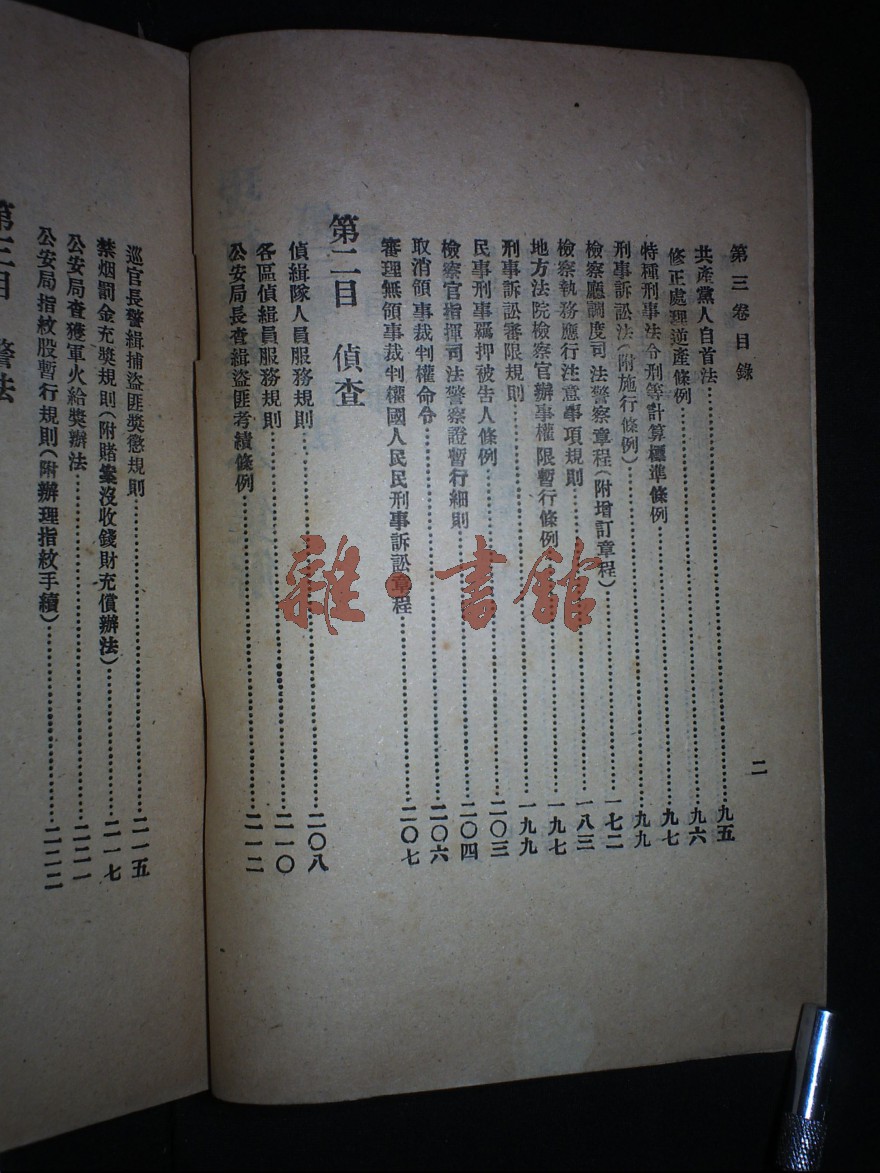 第三卷目錄
二
共產黨人自首法……九五
修正處理逆產條例……九六
特種刑事法令刑等計算標準條例……九七
刑事訴訟法(附施行條例)……九九
檢察廳調度司法警察章程(附增訂章程)……一七二
檢察執務應行注意事項規則……一八三
地方法院檢察官辦事權限暫行條例……一九七
刑事訴訟審限規則……一九九
民事刑事羈押被告人條例……二〇三
檢察官指揮司法警察證暫行細則……二〇四
取消領事裁判權命令……二〇六
審理無領事裁判權國人民民刑事訴訟章程……二〇七
第二目 偵查
偵緝隊人員服務規則……二〇八
各區偵緝員服務規則……二一〇
公安局長查緝盜匪考績條例……二一二
巡官長警緝捕盜匪獎懲規則……二一五
禁烟罰金充獎規則(附賭案沒收錢財充償辦法)……二一七
公安局查獲軍火給獎辦法……二二一
公安局指紋股暫行規則(附辦理指紋手續)……二二二
第三目 警法
雜·書館